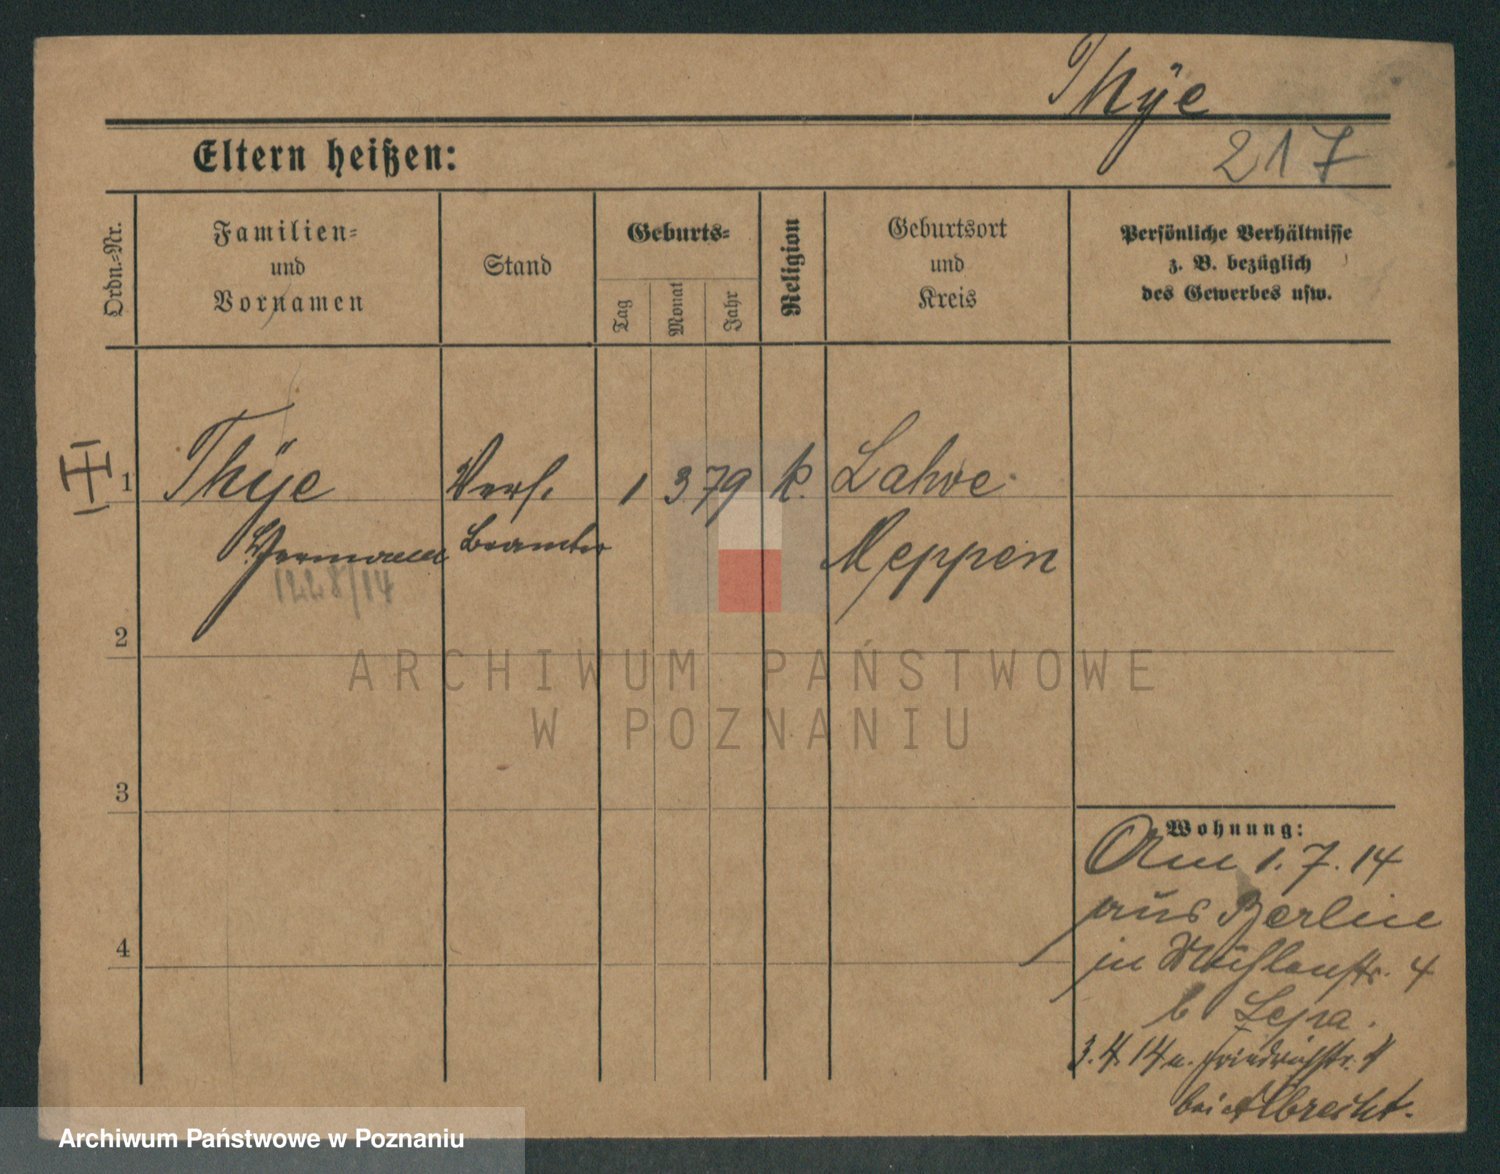 Thÿe
217
Eltern heißen:
Ordn.-Nr.
Familien-
und
Vornamen
Stand
Geburts-
Tag
Monat
Jahr
Religion
Geburtsort
und
Kreis
Persönliche Verhältnisse
z. B. bezüglich
des Gewerbes usw.
1 Thÿe Vers. 1 3 79 k. Lahre
Hermann Beamter Meppen
1228/14
2
3
4
Wohnung:
Am 1.7.14
aus Berlin
in Mühlenstr. 4
b
3. 14 n. Friedrichstr.
bei Albrecht.
ARCHIWUM PAŃSTWOWE
W POZNANIU
Archiwum Państwowe w Poznaniu